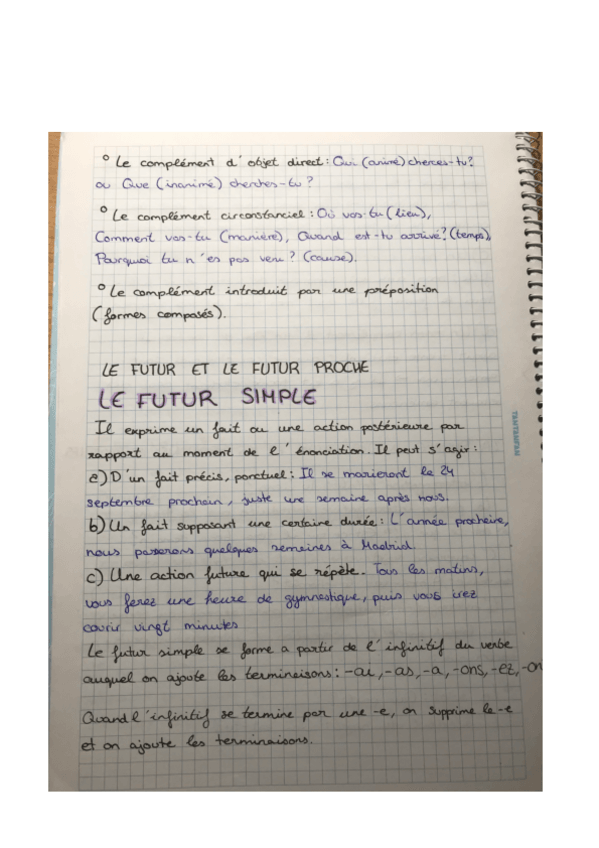 ° Le complément d'objet direct : Qui (animé) cherces-tu?
ou Que (inanimé) cherches-tu ?
° Le complément circonstanciel : Où vas-tu (lieu),
Comment vas-tu (manière), Quand est-tu arrivé? (temps),
Pourquoi tu n'es pas venu ? (cause).
° Le complément introduit par une préposition
(formes composés).
LE FUTUR ET LE FUTUR PROCHE
LE FUTUR SIMPLE
Il exprime un fait ou une action postérieure par
rapport au moment de l'énonciation. Il peut s'agir :
a) D'un fait précis, ponctuel : Il se marieront le 24
septembre prochain, juste une semaine après nous.
b) Un fait supposant une certaine durée : L'année prochaine,
nous passerons quelques semaines à Madrid.
c) Une action future qui se répète. Tous les matins,
vous ferez une heure de gymnastique, puis vous irez
courir vingt minutes
Le futur simple se forme a partir de l'infinitif du verbe
auquel on ajoute les terminaisons : -ai, -as, -a, -ons, -ez, -on
Quand l'infinitif se termine par une -e, on supprime le -e
et on ajoute les terminaisons.
TANTANFAN